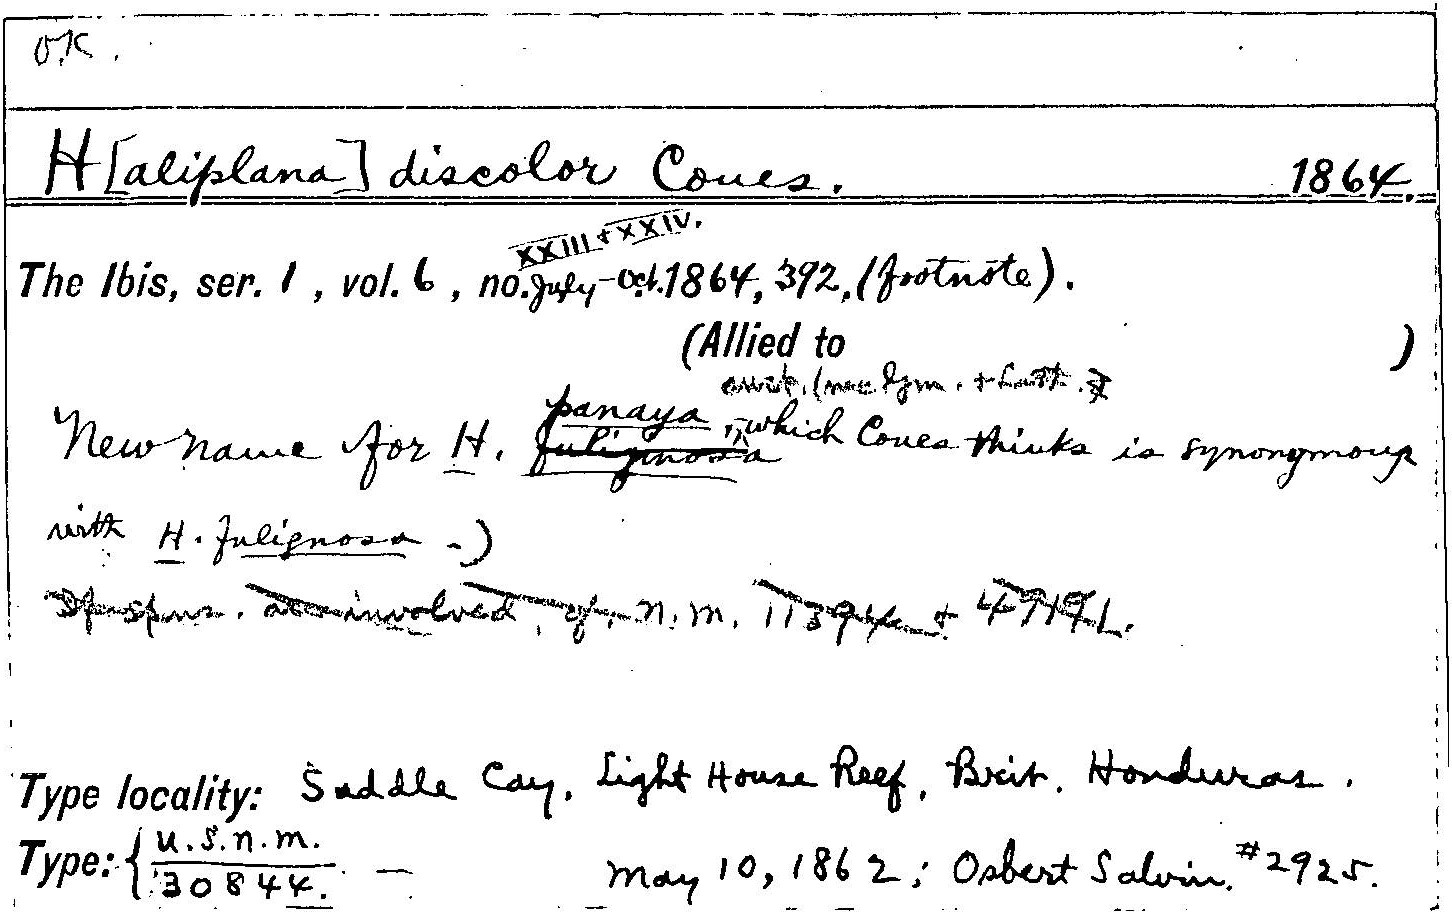 O.K.
H[aliplana] discolor Coues. 1864.
XXIII + XXIV.
The Ibis, ser. 1, vol. 6, no. July-Oct. 1864, 392, (footnote).
(Allied to )
auct. (nec Gm. + Lath.)
panaya
New name for H. fuliginosa, which Coues thinks is synonymous
with H. fulignosa -)
If spms. are involved, cf. N.M. 11394 + 49191.
Type locality: Saddle Cay, Light House Reef, Brit. Honduras.
Type: { U.S.N.M. — May 10, 1862; Osbert Salvin. #2925.
30844.